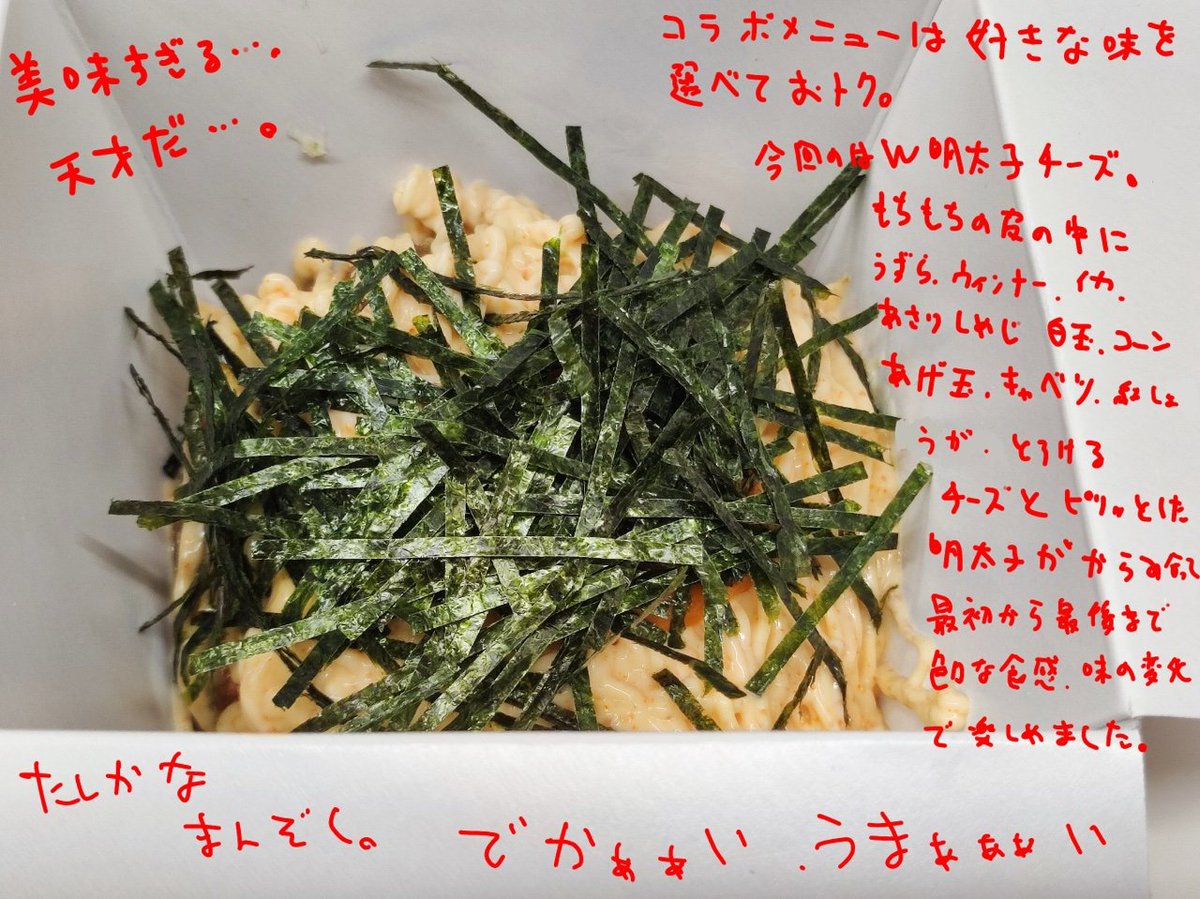 美味すぎる…。
天才だ…。
コラボメニューは好きな味を
選べておトク。
今回のはW明太子チーズ。
もちもちの皮の中に
うずら、ウィンナー、イカ、
あさりしめじ 白玉、コーン
あげ玉、キャベツ、紅しょ
うが、とろける
チーズとピリッとした
明太子がからみ合い
最初から最後まで
色んな食感、味の変化
で楽しめました。
たしかな
まんぞく。
でかぁぁい、うまぁぁぁい